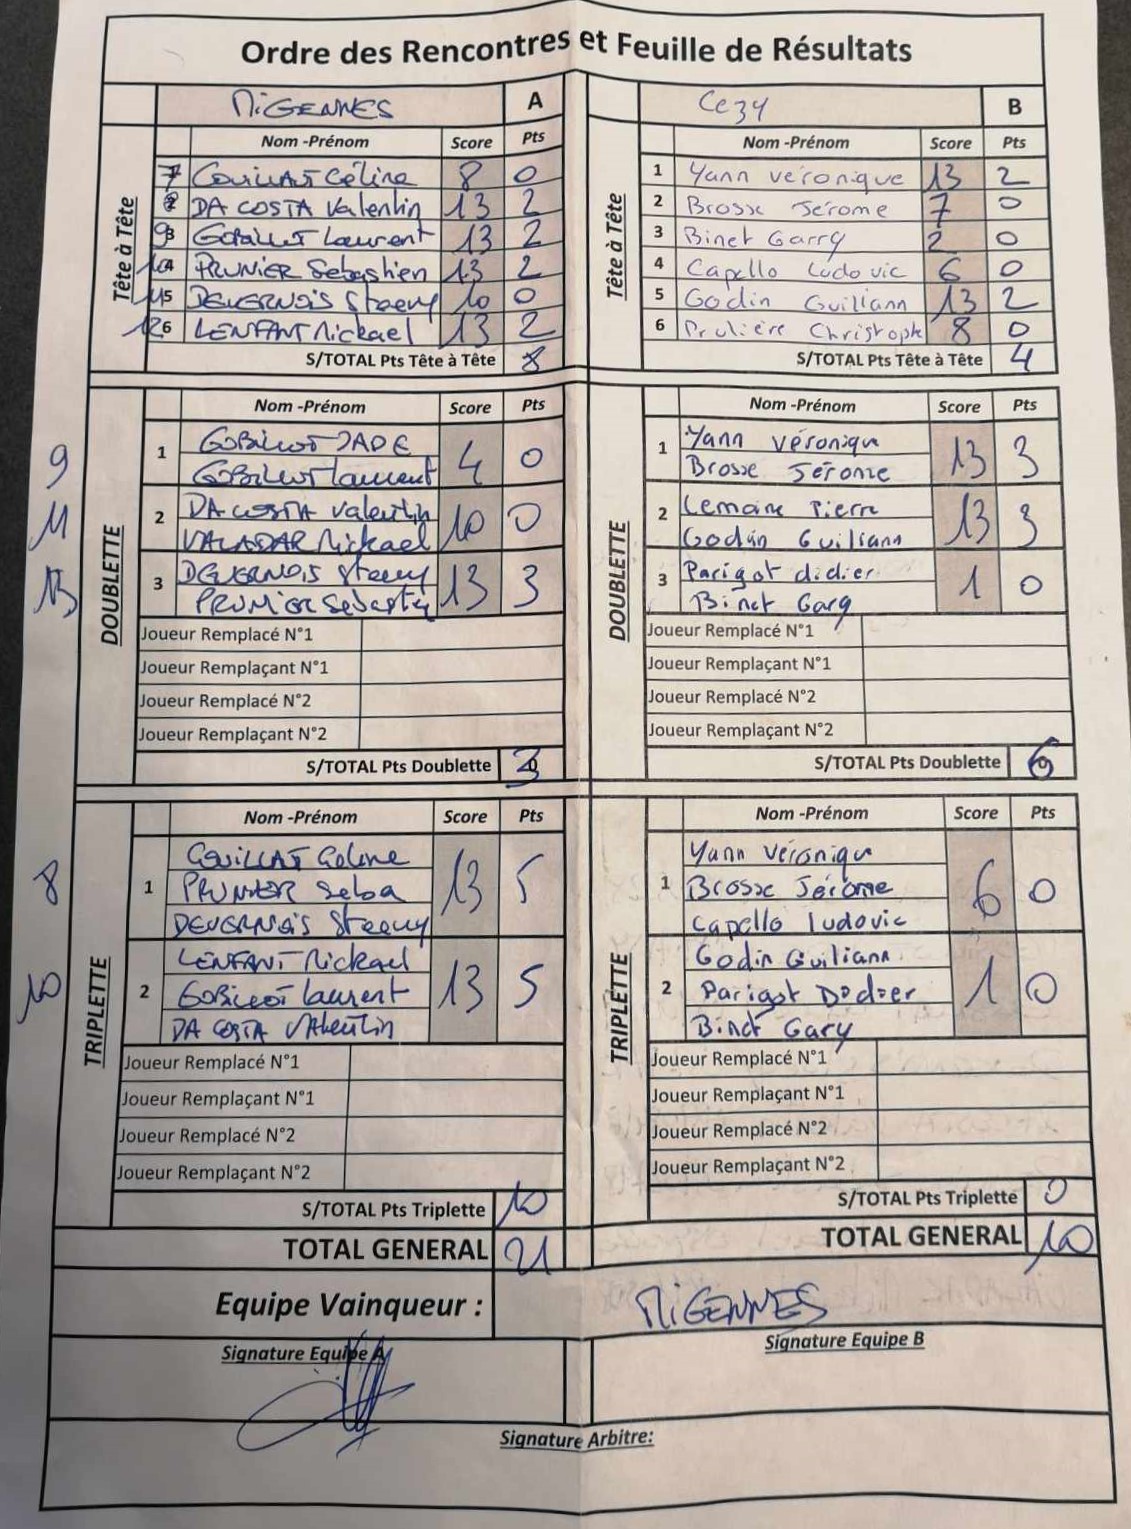 Ordre des Rencontres et Feuille de Résultats
MIGENNES A Cezy B
Nom -Prénom Score Pts Nom -Prénom Score Pts
Tête à Tête
7 COUILLAT Céline 8 0
DA COSTA Valentin 13 2
93 GOBILLOT Laurent 13 2
104 PRUNIER Sébastien 13 2
115 DEVERNOIS Steeny 10 0
126 LENFANT Mickael 13 2
S/TOTAL Pts Tête à Tête 8
Tête à Tête
1 Yann véronique 13 2
2 Brosse Jérome 7 0
3 Binet Garry 2 0
4 Capello Ludovic 6 0
5 Godin Guiliann 13 2
6 Prulière Christoph 8 0
S/TOTAL Pts Tête à Tête 4
DOUBLETTE
Nom -Prénom Score Pts
9 1 GOBILLOT JADE 4 0
GOBILLOT Laurent
11 2 DA COSTA Valentin 10 0
VALADAR Mickael
13 3 DEVERNOIS Steeny 13 3
PRUNIER Sébastien
Joueur Remplacé N°1
Joueur Remplaçant N°1
Joueur Remplacé N°2
Joueur Remplaçant N°2
S/TOTAL Pts Doublette 3
DOUBLETTE
Nom -Prénom Score Pts
1 Yann Véroniqu 13 3
Brosse Jérome
2 Lemaire Pierre 13 3
Godin Guiliann
3 Parigot didier 1 0
Binet Gary
Joueur Remplacé N°1
Joueur Remplaçant N°1
Joueur Remplacé N°2
Joueur Remplaçant N°2
S/TOTAL Pts Doublette 6
TRIPLETTE
Nom -Prénom Score Pts
8 1 COUILLAT Celine 13 5
PRUNIER Seba
DEVERNOIS Steeny
10 2 LENFANT Mickael 13 5
GOBILLOT Laurent
DA COSTA Valentin
Joueur Remplacé N°1
Joueur Remplaçant N°1
Joueur Remplacé N°2
Joueur Remplaçant N°2
S/TOTAL Pts Triplette 10
TRIPLETTE
Nom -Prénom Score Pts
1 Yann Véroniqu 6 0
Brosse Jérome
Capello Ludovic
2 Godin Guiliann 1 0
Parigot Didier
Binet Gary
Joueur Remplacé N°1
Joueur Remplaçant N°1
Joueur Remplacé N°2
Joueur Remplaçant N°2
S/TOTAL Pts Triplette 0
TOTAL GENERAL 21 TOTAL GENERAL 10
Equipe Vainqueur : MIGENNES
Signature Equipe A Signature Equipe B
Signature Arbitre: